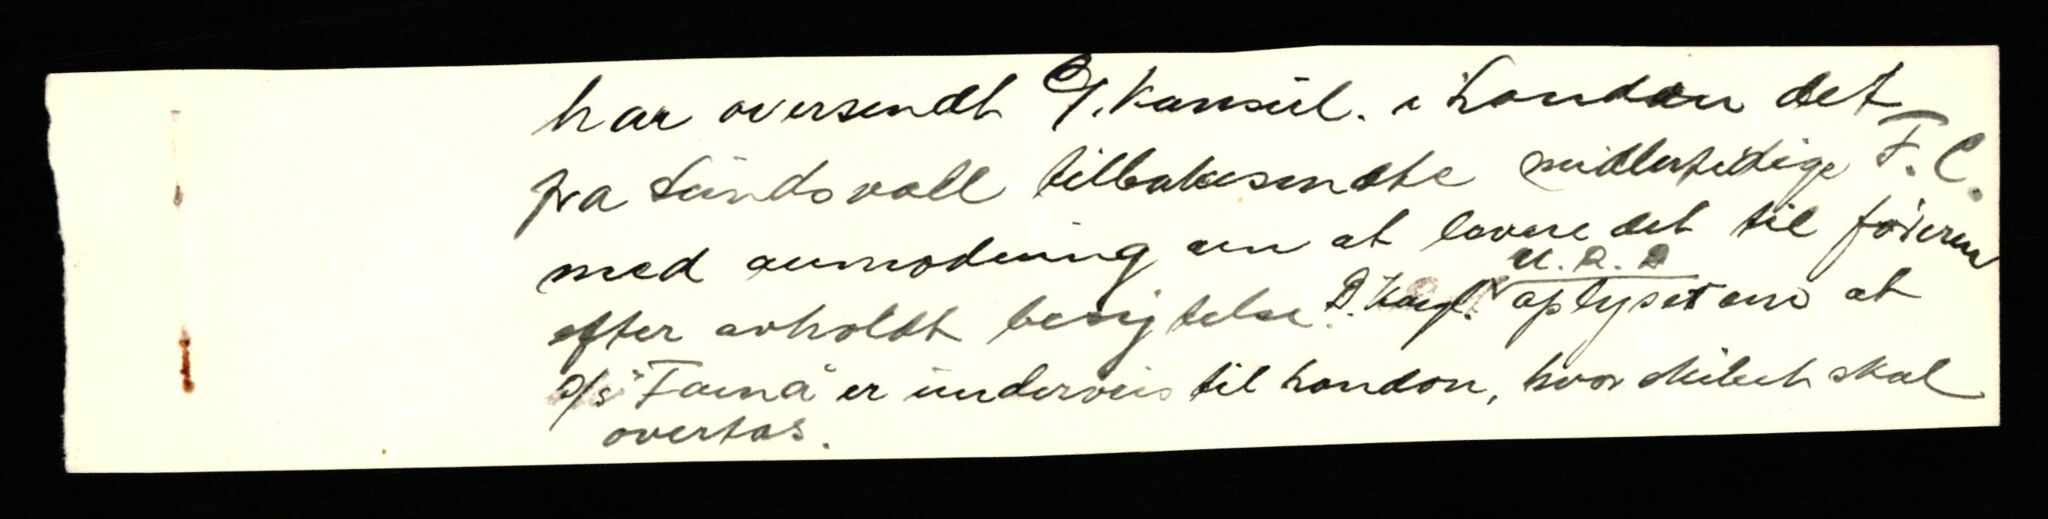 har oversendt G/. Konsul. i London det
fra Sundsvall tilbakesendte midlertidige F. C.
med anmodning om at levere det til föreren
efter avholdt besigtelse. 
U. D. D
oplyset om at
D/S "Fauna" er underveis til London, hvor skibet skal
overtas.